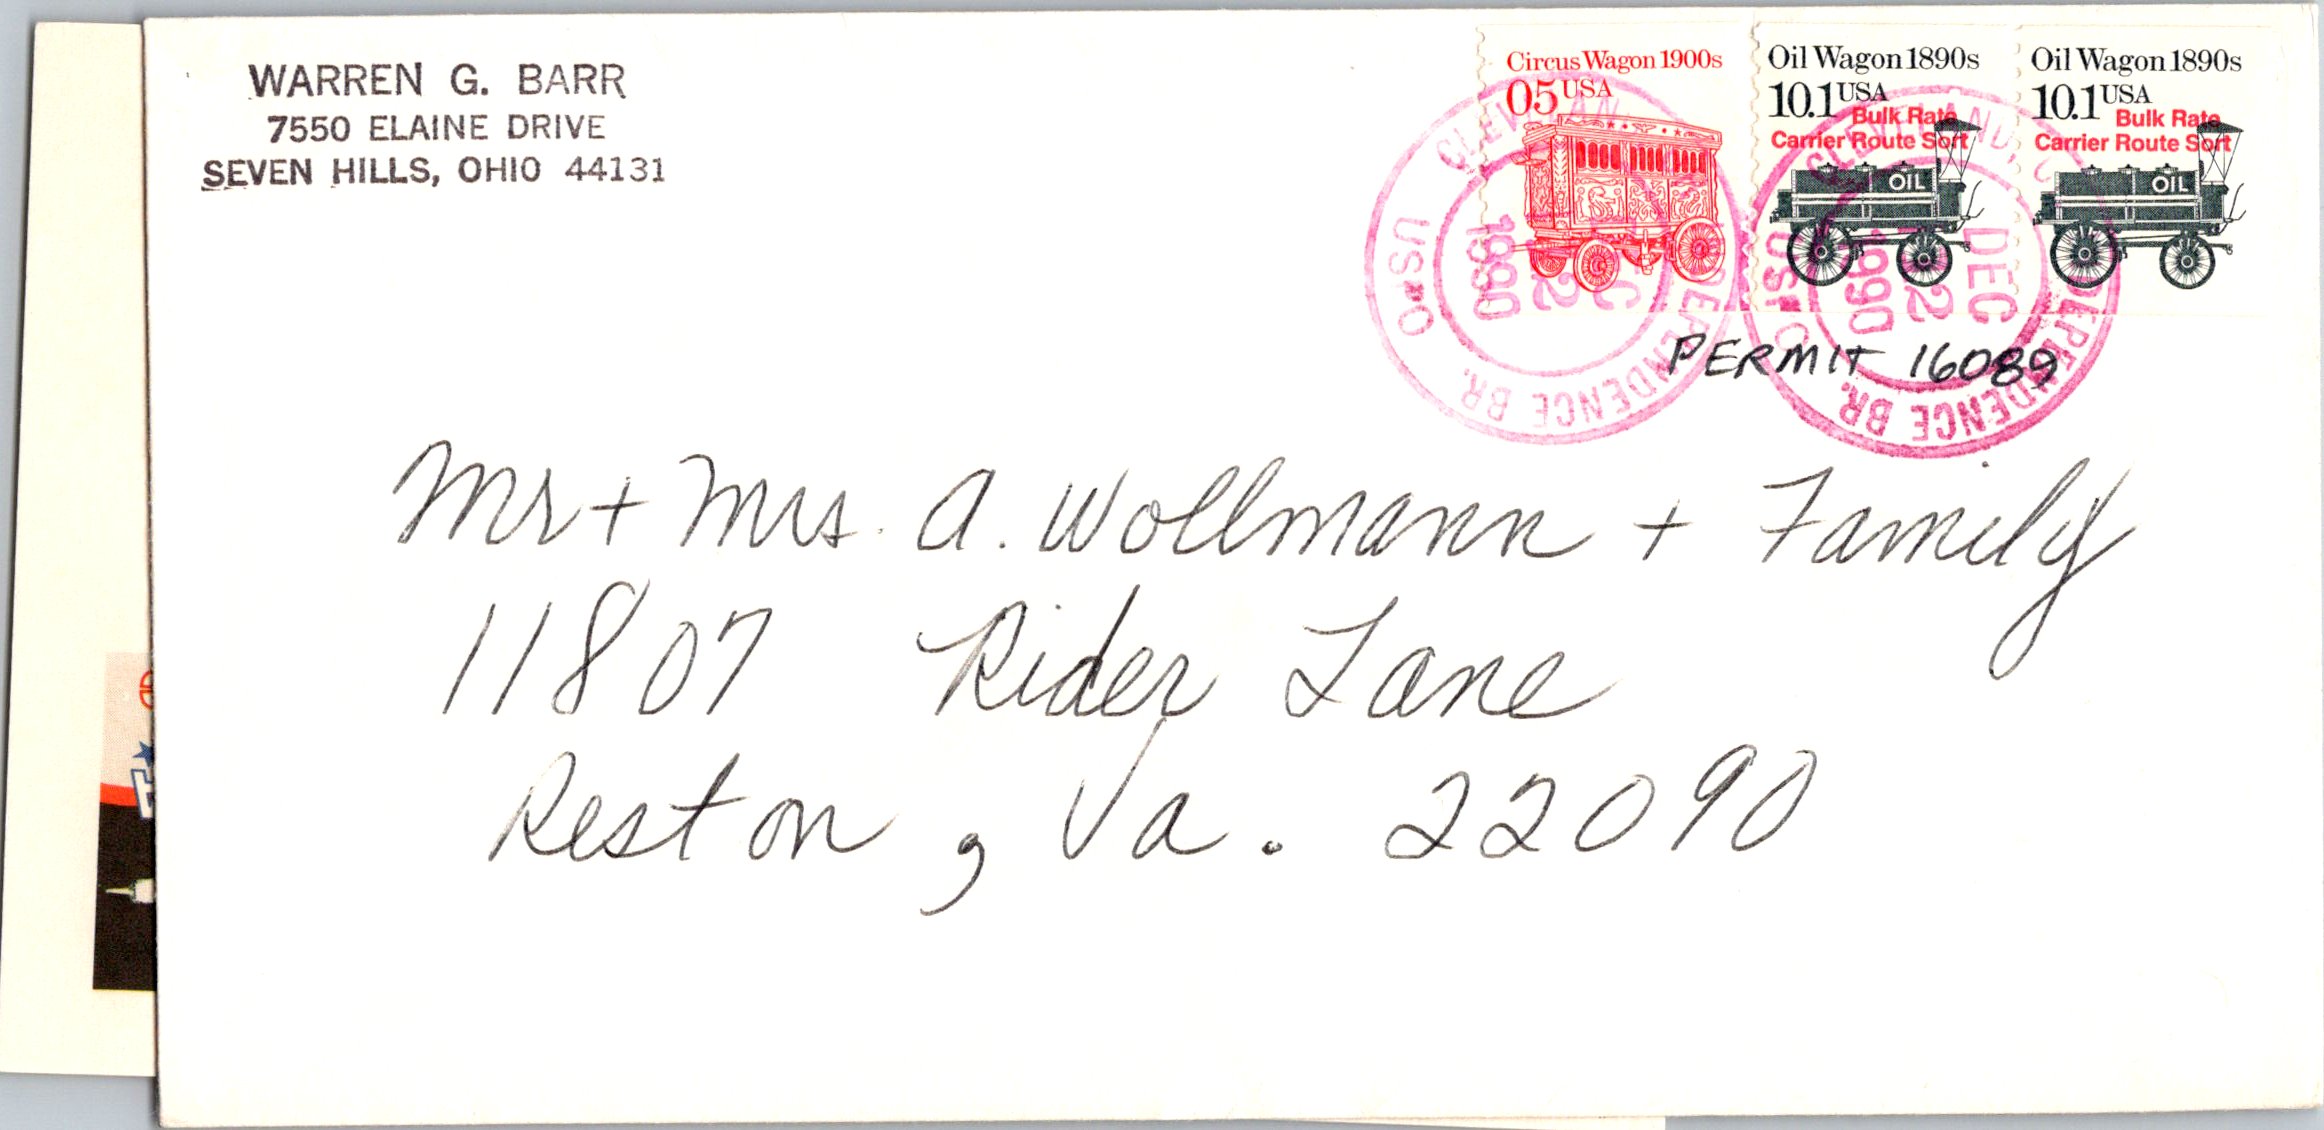 WARREN G. BARR
7550 ELAINE DRIVE
SEVEN HILLS, OHIO 44131
Circus Wagon 1900s
05 USA
Oil Wagon 1890s
10.1 USA
Bulk Rate
Carrier Route Sort
OIL
Oil Wagon 1890s
10.1 USA
Bulk Rate
Carrier Route Sort
OIL
INDEPENDENCE BR.
USPO
DEC
1990
INDEPENDENCE BR.
USPO
DEC
1990
PERMIT 16089
Mr + Mrs. A. Wollmann + Family
11807 Rider Lane
Reston, Va. 22090